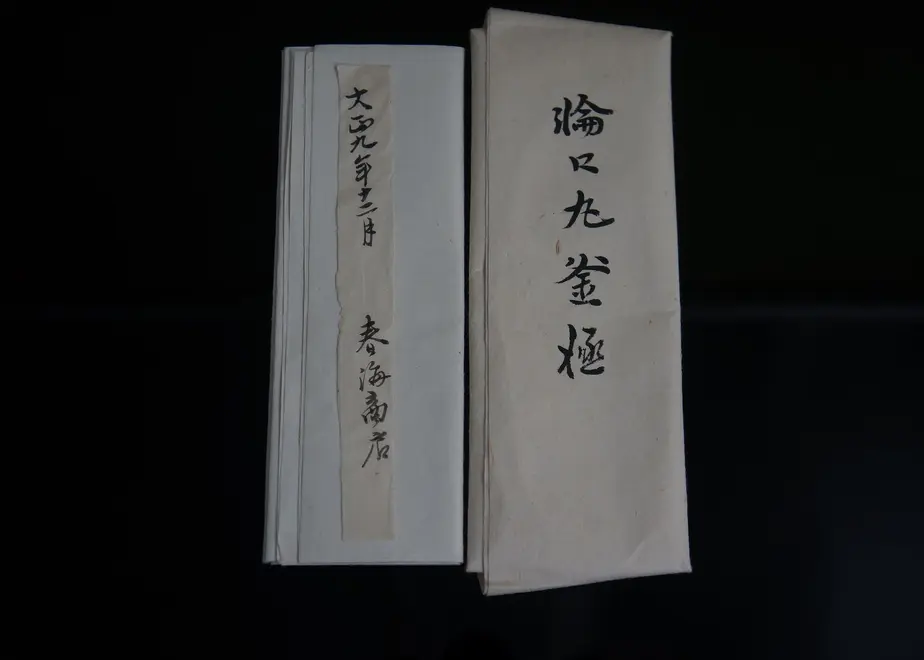 輪口丸釜極
大正九年十二月
春海商店